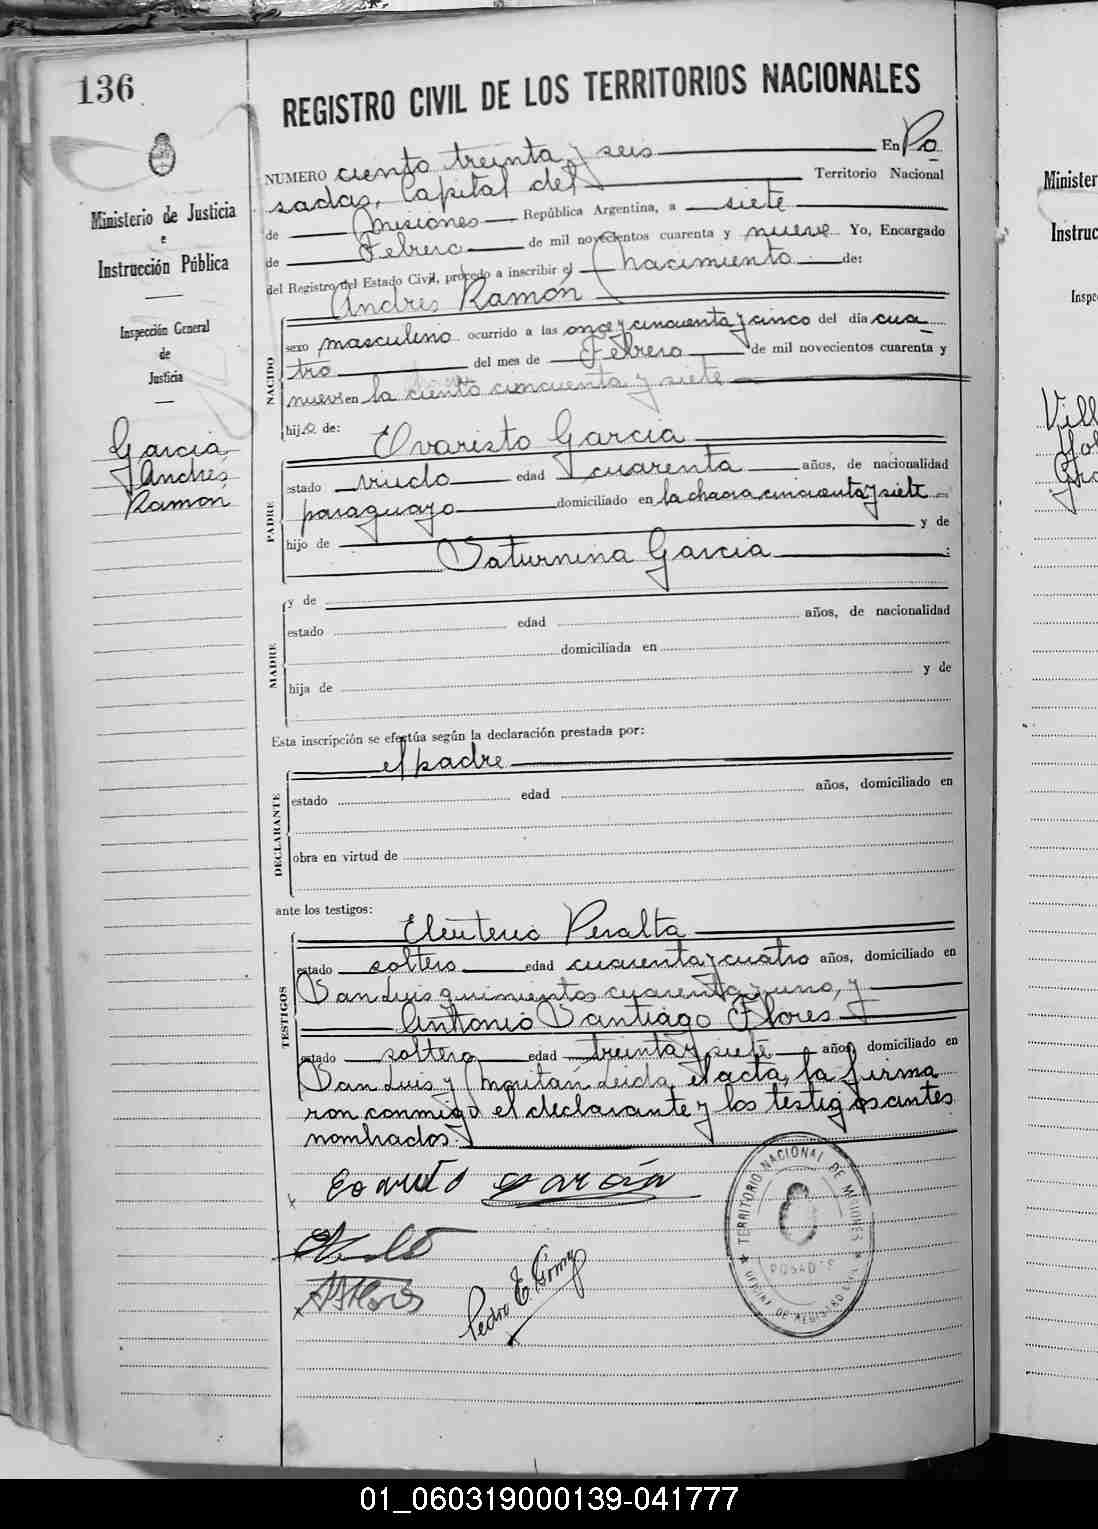 136
REGISTRO CIVIL DE LOS TERRITORIOS NACIONALES
Ministerio de Justicia
e
Instrucción Pública
Inspección General
de
Justicia
García,
Andres
Ramon
NUMERO ciento treinta y seis En Po
sadas, Capital del Territorio Nacional
de Misiones República Argentina, a siete
de Febrero de mil novecientos cuarenta y nueve Yo, Encargado
del Registro del Estado Civil, procedo a inscribir el nacimiento de:
Andres Ramón
NACIDO
sexo masculino ocurrido a las once y cincuenta y cinco del día cua
tro del mes de Febrero de mil novecientos cuarenta y
nueve en la ciento cincuenta y siete
hijo de: Evaristo García
PADRE
estado viudo edad cuarenta años, de nacionalidad
paraguayo domiciliado en la chacra cincuenta y siete
hijo de y de
Saturnina García
MADRE
y de
estado edad años, de nacionalidad
domiciliada en
hija de y de
Esta inscripción se efectúa según la declaración prestada por:
el padre
DECLARANTE
estado edad años, domiciliado en
obra en virtud de
ante los testigos:
Eleuterio Peralta
TESTIGOS
estado soltero edad cuarenta y cuatro años, domiciliado en
San Luis quinientos cuarenta y uno, y
Antonio Santiago Flores
estado soltero edad treinta y siete años, domiciliado en
San Luis y Moritán Leida el acta, la firma
ron conmigo el declarante y los testigos antes
nombrados.
Evaristo García
Pedro E. Gomez
TERRITORIO NACIONAL DE MISIONES
POSADAS
OFICINA DE REGISTRO CIVIL
Minister
Instruc
Inspe
Vill
01_060319000139-041777